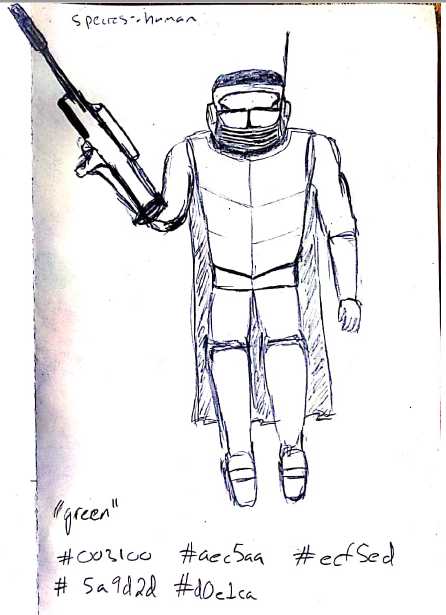 species-human
"green"
#003100 #aec5aa #ecf5ed
# 5a9d2d #d0e1ca